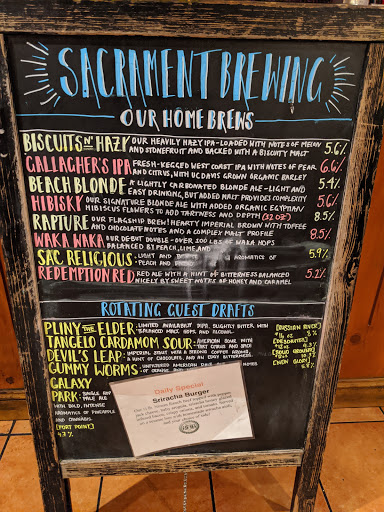 SACRAMENT BREWING
OUR HOME BREWS
BISCUITS N' HAZY OUR HEAVILY HAZY IPA - LOADED WITH NOTES OF MELON 5.6%
AND STONEFRUIT AND BACKED WITH A BISCUITY MALT
GALLAGHER'S IPA FRESH-KEGGED WEST COAST IPA WITH NOTES OF PEAR 6.6%
AND CITRUS, WITH UC DAVIS GROWN ORGANIC BARLEY
BEACH BLONDE A LIGHTLY CARBONATED BLONDE ALE - LIGHT AND 5.4%
EASY DRINKING, BUT ADDED MALT PROVIDES COMPLEXITY
HIBISKY OUR SIGNATURE BLONDE ALE WITH ADDED ORGANIC EGYPTIAN 5.6%
HIBISCUS FLOWERS TO ADD TARTNESS AND DEPTH (32 OZ)
RAPTURE OUR FLAGSHIP BREW! HEARTY IMPERIAL BROWN WITH TOFFEE 8.5%
AND CHOCOLATE NOTES AND A COMPLEX MALT PROFILE
WAKA WAKA OUR DEBUT DOUBLE - OVER 200 LBS OF WAKA HOPS 8.5%
BALANCED BY PEACH, LIME AND
SAC RELIGIOUS LIGHT AND AROMATICS OF 5.9%
PEACH AND
REDEMPTION RED RED ALE WITH A HINT OF BITTERNESS BALANCED 5.2%
NICELY BY SWEET NOTES OF HONEY AND CARAMEL
ROTATING GUEST DRAFTS
PLINY THE ELDER: LIMITED AVAILABILITY DIPA, SLIGHTLY BITTER, WITH [RUSSIAN RIVER]
BALANCED MALT, HOPS, AND ALCOHOL. 8%
TANGELO CARDAMOM SOUR: AMERICAN SOUR WITH [DESCHUTES]
TART CITRUS AND SPICE 4.3%
DEVIL'S LEAP: IMPERIAL STOUT WITH A STRONG COFFEE AROMA,
A HINT OF CHOCOLATE, AND AN EARY BITTERNESS.
GUMMY WORMS: UNFILTERED AMERICAN NOTES
OF
GALAXY
PARK: SINGLE HOP
PALE ALE
WITH BOLD, INTENSE
AROMATICS OF PINEAPPLE
AND CANNABIS.
[PORT POINT]
4.7%
Daily Special
Sriracha Burger